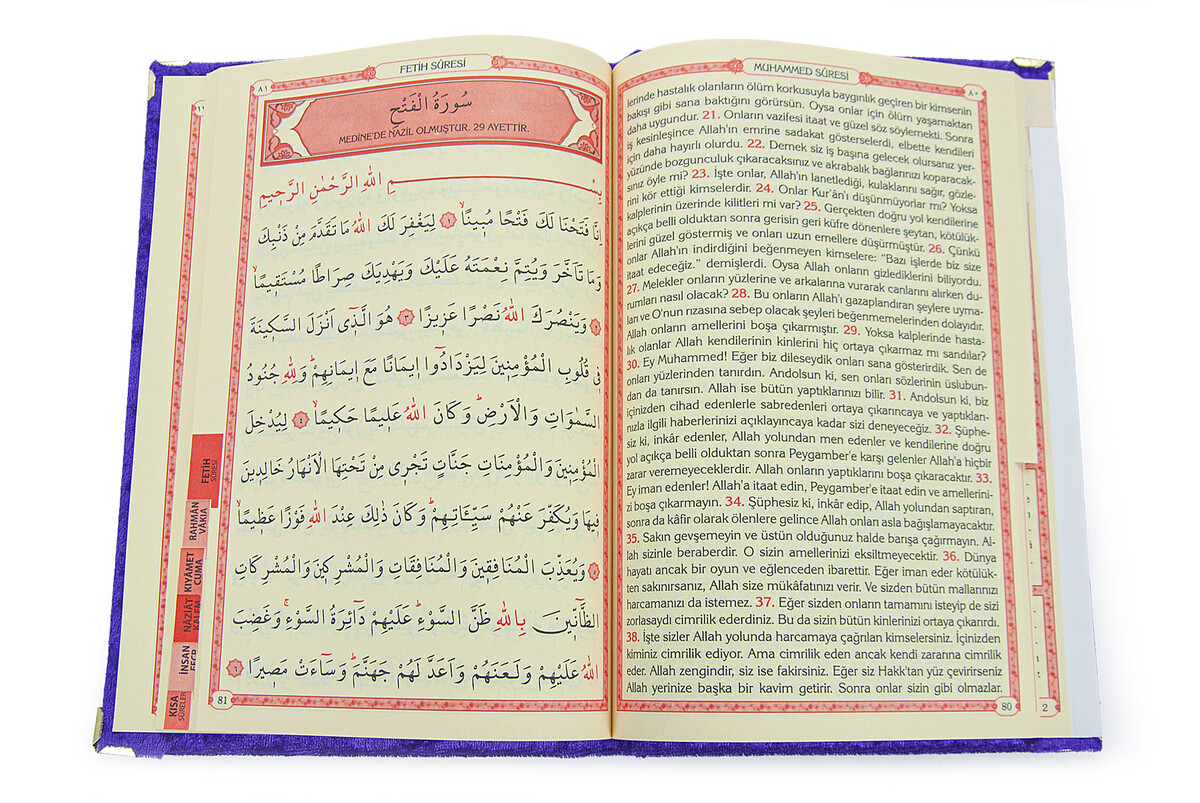 MUHAMMED SÛRESİ
٨٠
lerinde hastalık olanların ölüm korkusuyla baygınlık geçiren bir kimsenin
bakışı gibi sana baktığını görürsün. Oysa onlar için ölüm yaşamaktan
daha uygundur. 21. Onların vazifesi itaat ve güzel söz söylemekti. Sonra
iş kesinleşince Allah'ın emrine sadakat gösterselerdi, elbette kendileri
için daha hayırlı olurdu. 22. Demek siz iş başına gelecek olursanız yer-
yüzünde bozgunculuk çıkaracaksınız ve akrabalık bağlarınızı koparacak-
sınız öyle mi? 23. İşte onlar, Allah'ın lanetlediği, kulaklarını sağır, gözle-
rini kör ettiği kimselerdir. 24. Onlar Kur'ân'ı düşünmüyorlar mı? Yoksa
kalplerinin üzerinde kilitleri mi var? 25. Gerçekten doğru yol kendilerine
açıkça belli olduktan sonra gerisin geri küfre dönenlere şeytan, kötülük-
lerini güzel göstermiş ve onları uzun emellere düşürmüştür. 26. Çünkü
onlar Allah'ın indirdiğini beğenmeyen kimselere: "Bazı işlerde biz size
itaat edeceğiz." demişlerdi. Oysa Allah onların gizlediklerini biliyordu.
27. Melekler onların yüzlerine ve arkalarına vurarak canlarını alırken du-
rumları nasıl olacak? 28. Bu onların Allah'ı gazaplandıran şeylere uyma-
ları ve O'nun rızasına sebep olacak şeyleri beğenmemelerinden dolayıdır.
Allah onların amellerini boşa çıkarmıştır. 29. Yoksa kalplerinde hasta-
lık olanlar Allah kendilerinin kinlerini hiç ortaya çıkarmaz mı sandılar?
30. Ey Muhammed! Eğer biz dileseydik onları sana gösterirdik. Sen de
onları yüzlerinden tanırdın. Andolsun ki, sen onları sözlerinin üslubun-
dan da tanırsın. Allah ise bütün yaptıklarınızı bilir. 31. Andolsun ki, biz
içinizden cihad edenlerle sabredenleri ortaya çıkarıncaya ve yaptıkları-
nızla ilgili haberlerinizi açıklayıncaya kadar sizi deneyeceğiz. 32. Şüphe-
siz ki, inkâr edenler, Allah yolundan men edenler ve kendilerine doğru
yol açıkça belli olduktan sonra Peygamber'e karşı gelenler Allah'a hiçbir
zarar veremeyeceklerdir. Allah onların yaptıklarını boşa çıkaracaktır. 33.
Ey iman edenler! Allah'a itaat edin, Peygamber'e itaat edin ve amellerini-
zi boşa çıkarmayın. 34. Şüphesiz ki, inkâr edip, Allah yolundan saptıran,
sonra da kâfir olarak ölenlere gelince Allah onları asla bağışlamayacaktır.
35. Sakın gevşemeyin ve üstün olduğunuz halde barışa çağırmayın. Al-
lah sizinle beraberdir. O sizin amellerinizi eksiltmeyecektir. 36. Dünya
hayatı ancak bir oyun ve eğlenceden ibarettir. Eğer iman eder kötülük-
ten sakınırsanız, Allah size mükâfatınızı verir. Ve sizden bütün mallarınızı
harcamanızı da istemez. 37. Eğer sizden onların tamamını isteyip de sizi
zorlasaydı cimrilik ederdiniz. Bu da sizin bütün kinlerinizi ortaya çıkarırdı.
38. İşte sizler Allah yolunda harcamaya çağrılan kimselersiniz. İçinizden
kiminiz cimrilik ediyor. Ama cimrilik eden ancak kendi zararına cimrilik
eder. Allah zengindir, siz ise fakirsiniz. Eğer siz Hakk'tan yüz çevirirseniz
Allah yerinize başka bir kavim getirir. Sonra onlar sizin gibi olmazlar.
80
2
FETİH SÛRESİ
٨١
سُورَةُ الْفَتْحِ
MEDİNE'DE NAZİL OLMUŞTUR. 29 AYETTİR.
بِسْمِ اللهِ الرَّحْمٰنِ الرَّحِيمِ
اِنَّا فَتَحْنَا لَكَ فَتْحًا مُبِينًاۙ ١ لِيَغْفِرَ لَكَ اللهُ مَا تَقَدَّمَ مِنْ ذَنْبِكَ
وَمَا تَاَخَّرَ وَيُتِمَّ نِعْمَتَهُ عَلَيْكَ وَيَهْدِيَكَ صِرَاطًا مُسْتَقِيمًاۙ
٢ وَيَنْصُرَكَ اللهُ نَصْرًا عَزِيزًا ٣ هُوَ الَّذِٓى اَنْزَلَ السَّكِينَةَ
فِى قُلُوبِ الْمُؤْمِنِينَ لِيَزْدَادُٓوا اِيمَانًا مَعَ اِيمَانِهِمْۜ وَلِلّٰهِ جُنُودُ
السَّمٰوَاتِ وَالْاَرْضِۜ وَكَانَ اللهُ عَلِيمًا حَكِيمًاۙ ٤ لِيُدْخِلَ
الْمُؤْمِنِينَ وَالْمُؤْمِنَاتِ جَنَّاتٍ تَجْرِى مِنْ تَحْتِهَا الْاَنْهَارُ خَالِدِينَ
فِيهَا وَيُكَفِّرَ عَنْهُمْ سَيِّـَٔاتِهِمْۜ وَكَانَ ذٰلِكَ عِنْدَ اللهِ فَوْزًا عَظِيمًاۙ
٥ وَيُعَذِّبَ الْمُنَافِقِينَ وَالْمُنَافِقَاتِ وَالْمُشْرِكِينَ وَالْمُشْرِكَاتِ
الظَّٓانِّينَ بِاللهِ ظَنَّ السَّوْءِۜ عَلَيْهِمْ دَٓائِرَةُ السَّوْءِۚ وَغَضِبَ
اللهُ عَلَيْهِمْ وَلَعَنَهُمْ وَاَعَدَّ لَهُمْ جَهَنَّمَۜ وَسَٓاءَتْ مَصِيرًا ٦
81
FETİH
SÛRESİ
RAHMÂN
VÂKIA
KIYÂMET
CUMA
NÂZİÂT
İNSAN
KISA
SÛRELER